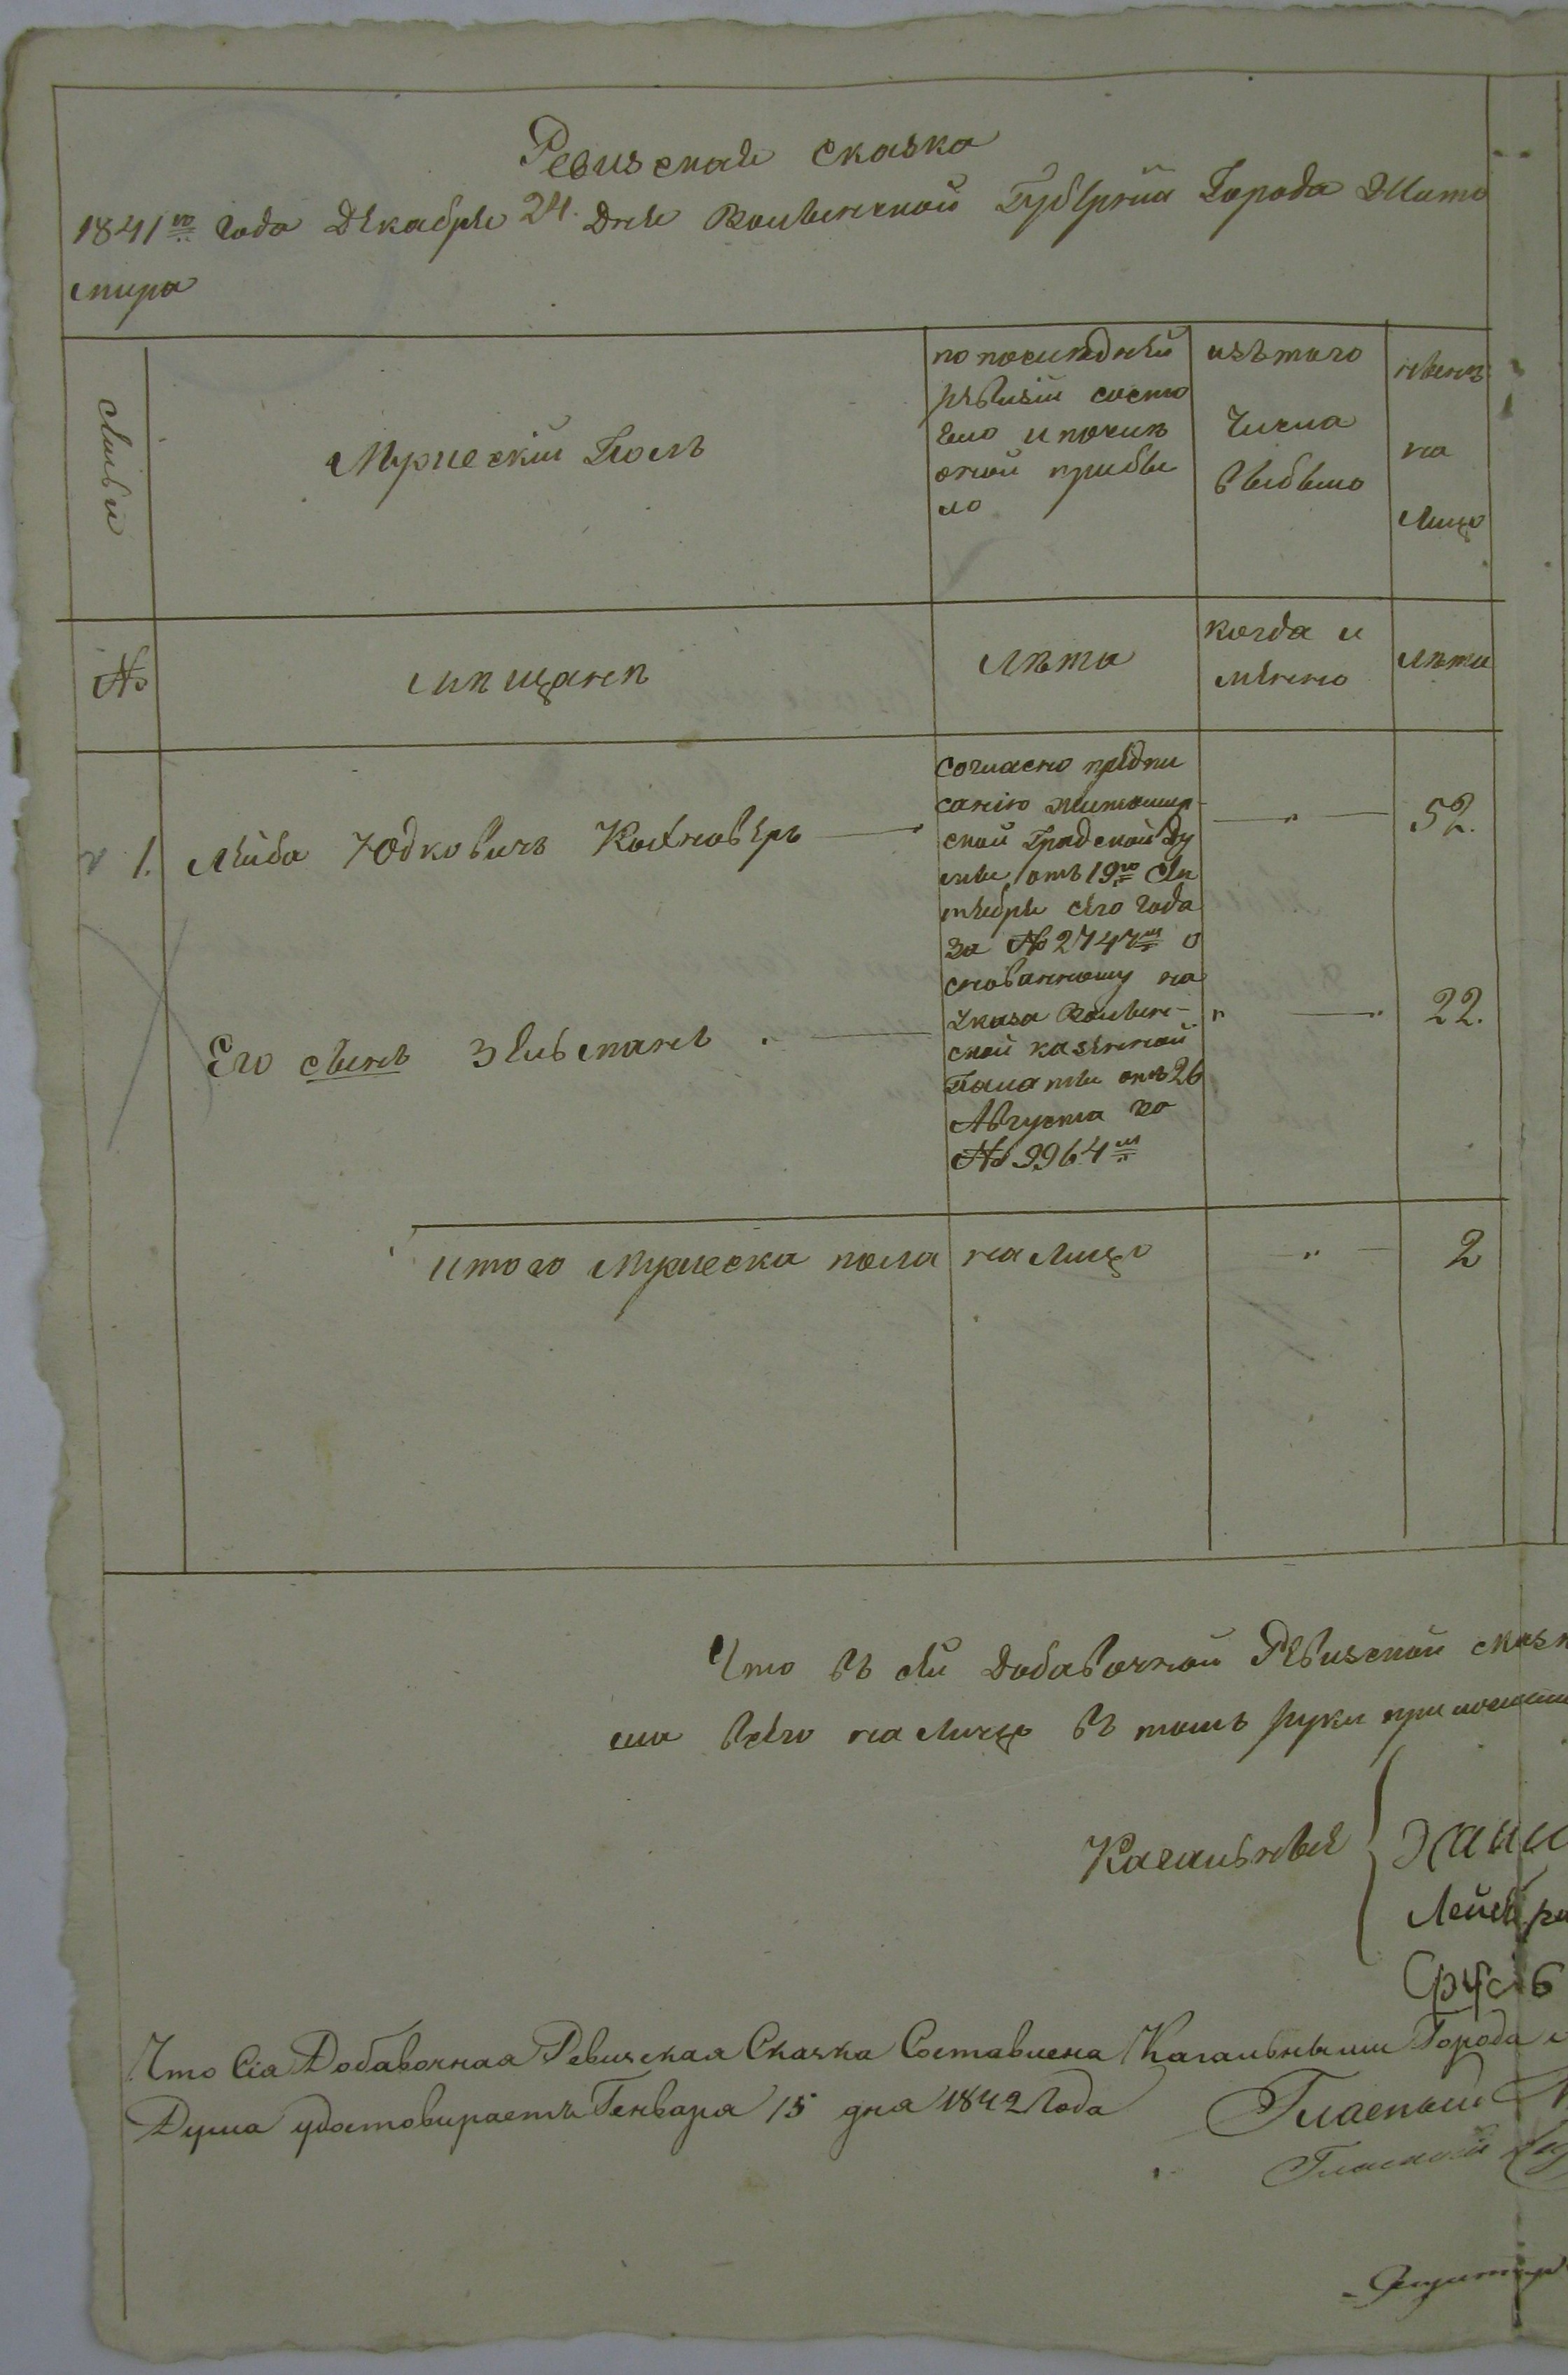 Ревизская сказка
1841го года Декабря 24. Дня Волынской Губернiи Города Жито
мира
Семьи
Мужескiй Полъ
по последней
ревизiи состо
яло и после
оной прибы
ло
изъ того
Числа
выбыло
ныне
на
Лицо
№
мещане
Лета
когда и
именно
Лета
1. Лейба Юдковичъ
согласно предпи
санiю Житомир-
ской Градской Ду
мы отъ 19го Се
нтября сего года
за № 2747м о
снованному на
Указа Волын-
ской казенной
Палаты отъ 26
Августа по
№ 9964м
" 52.
Его сынъ
" 22.
итого Мужеска пола на Лицо " 2
Что въ сей Добавочной Ревизской сказк
всего на Лицо въ томъ руки приложили
Кагальные
Лейб
Срусь
Что Сiа Добавочная Ревизская Сказка Составлена Кагальными Города
Дума удостовираетъ Генваря 15 дня 1842 Года
Гласный
Гласный